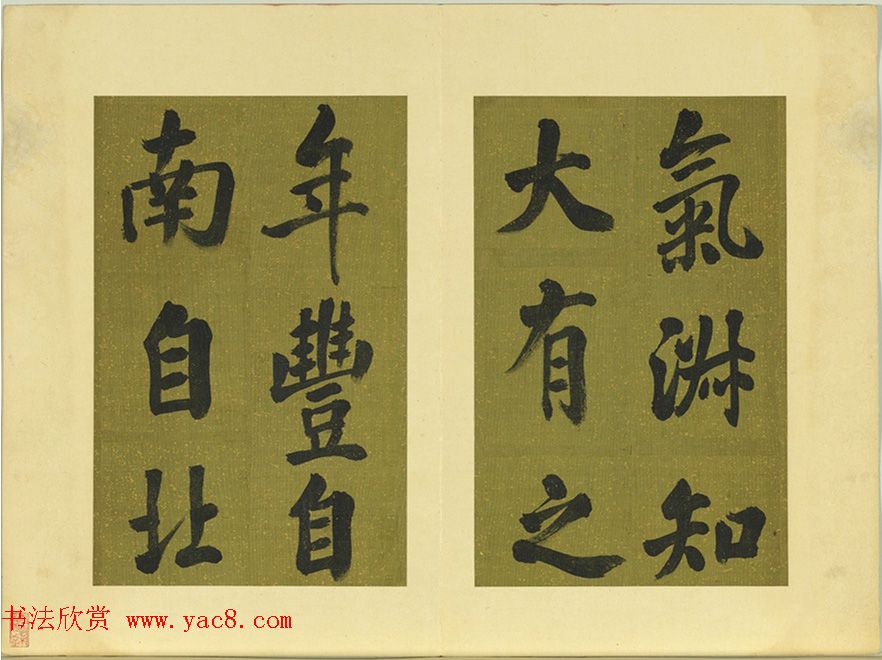 氣 知
大有之
年豐自
南自北
书法欣赏 www.yac8.com